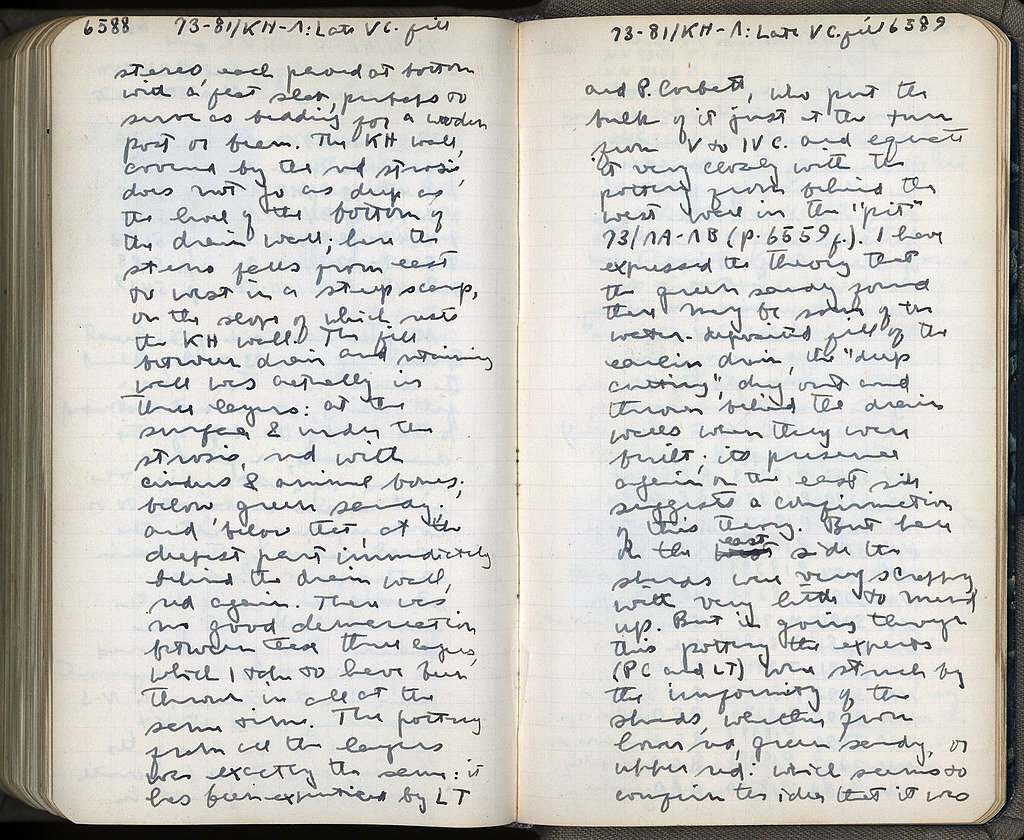 6588 73-81/KH-Λ: Late V C. fill
stereo, each paved at bottom
with a flat slab, perhaps to
serve as bedding for a wooden
post or beam. The KH wall,
covered by the red strosis,
does not go as deep as
the level of the bottom of
the drain wall; here the
stereo falls from east
to west in a steep scarp,
on the slope of which rests
the KH wall. The fill
between drain and retaining
wall was actually in
three layers: at the
surface & under the
strosis, red with
cinders & animal bones;
below, green sandy;
and below that, at the
deepest part immediately
behind the drain wall,
red again. There was
no good demarcation
between these three layers,
which I take to have been
thrown in all at the
same time. The pottery
from all the layers
was exactly the same: it
has been expertized by LT
73-81/KH-Λ: Late V C. fill 6589
and P. Corbett, who put the
bulk of it just at the turn
from V to IV C. and equate
it very closely with the
pottery from behind the
west wall in the "pit"
73/ΛA-ΛB (p. 6559 f.). I have
expressed the theory that
the green sandy found
there may be some of the
water-deposited fill of the
earlier drain, the "deep
cutting", dug out and
thrown behind the drain
walls when they were
built; its presence
again on the east side
suggests a confirmation
of this theory. But here
on the east side the
sherds were very scrappy
with very little to mend
up. But in going through
this pottery the experts
(PC and LT) were struck by
the uniformity of the
sherds, whether from
lower red, green sandy, or
upper red: which seems to
confirm the idea that it was